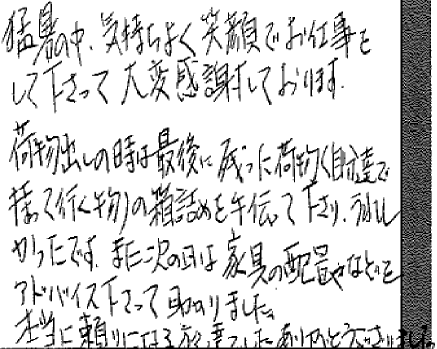 猛暑の中、気持ちよく笑顔でお仕事を
して下さって大変感謝しております。
荷物出しの時は最後に残った荷物(自分達で
持って行く物)の箱詰めを手伝って下さり、うれし
かったです。また次の日は家具の配置やなどを
アドバイス下さって助かりました。
本当に頼りになる方々でした。ありがとうございました。